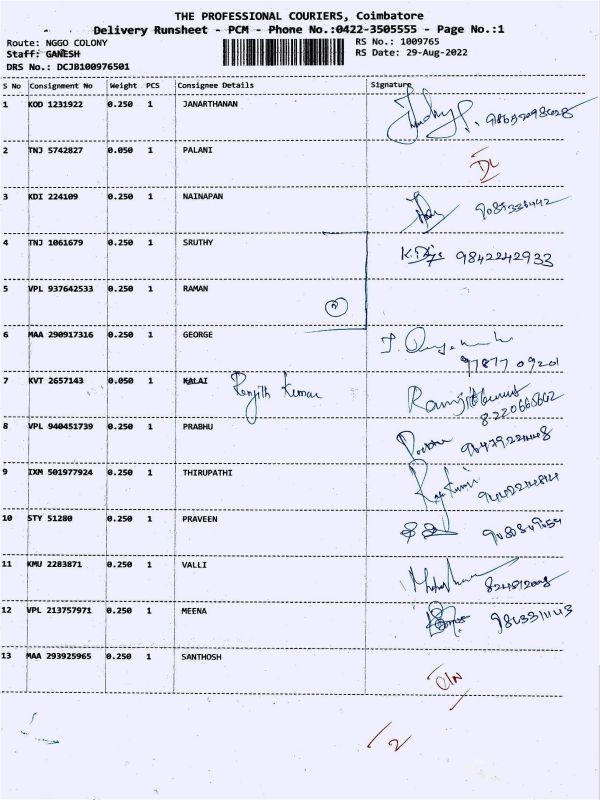 THE PROFESSIONAL COURIERS, Coimbatore
Delivery Runsheet - PCM - Phone No.:0422-3505555 - Page No.:1
Route: NGGO COLONY
RS No.: 1009765
Staff: GANESH
RS Date: 29-Aug-2022
DRS No.: DCJB100976501
S No Consignment No Weight PCS Consignee Details Signature
1 KOD 1231922 0.250 1 JANARTHANAN
2 TNJ 5742827 0.050 1 PALANI DL
3 KDI 224109 0.250 1 NAINAPAN
4 TNJ 1061679 0.250 1 SRUTHY 9842242933
5 VPL 937642533 0.250 1 RAMAN 2
6 MAA 290917316 0.250 1 GEORGE 97877 09201
7 KVT 2657143 0.050 1 KALAI Renjith Kumar
8220665662
8 VPL 940451739 0.250 1 PRABHU
9 IXM 501977924 0.250 1 THIRUPATHI
10 STY 51280 0.250 1 PRAVEEN
11 KMU 2283871 0.250 1 VALLI
12 VPL 213757971 0.250 1 MEENA
13 MAA 293925965 0.250 1 SANTHOSH
2